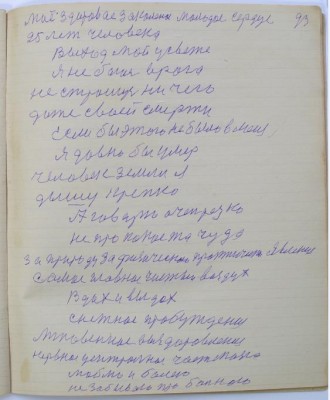 Мой здоровое закалённое молодое сердце 93
25 лет человека
Выход мой у света
Я не боюсь врага
не строишь ничего
даже своей смерти
Если бы этого не было в меня
Я давно бы умер
человек Земли я
дышу крепко
А говорю о
не про какие та чуда
за природу за физическое практическое явление
самое главное чистый воздух
Вдох и выдох
снежное пробуждение
Мгновенное выздоровление
нервно центральное части
люблю и болею
не забываю про больного